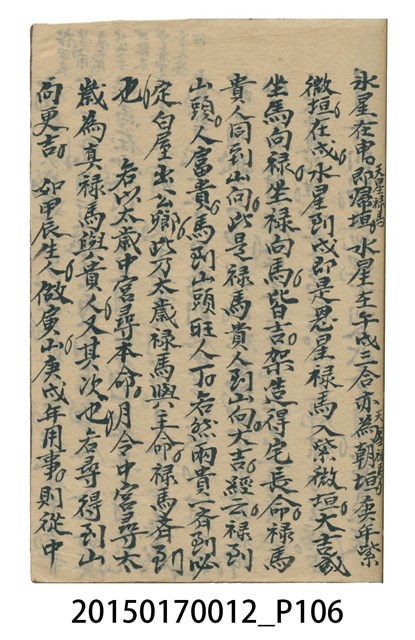 水星在申即歸垣水星至午戌三合亦為朝垣庚年紫
天星祿馬
微垣在戌水星到戌即是恩星祿馬入紫微垣大吉或
坐馬向祿坐祿向馬皆吉架造得宅長命祿馬
貴人同到山向此是祿馬貴人到山向大吉經云祿到
山頭人富貴馬到山頭旺人丁若然兩貴一齊到必
定白屋出公卿此乃太歲祿馬與主命祿馬齊到
也 若以太歲中宮尋本命月令中宮尋太
歲為真祿馬與貴人又其次也若尋得到山
向更吉 如甲辰生人做寅山庚戌年用事則從中
20150170012_P106